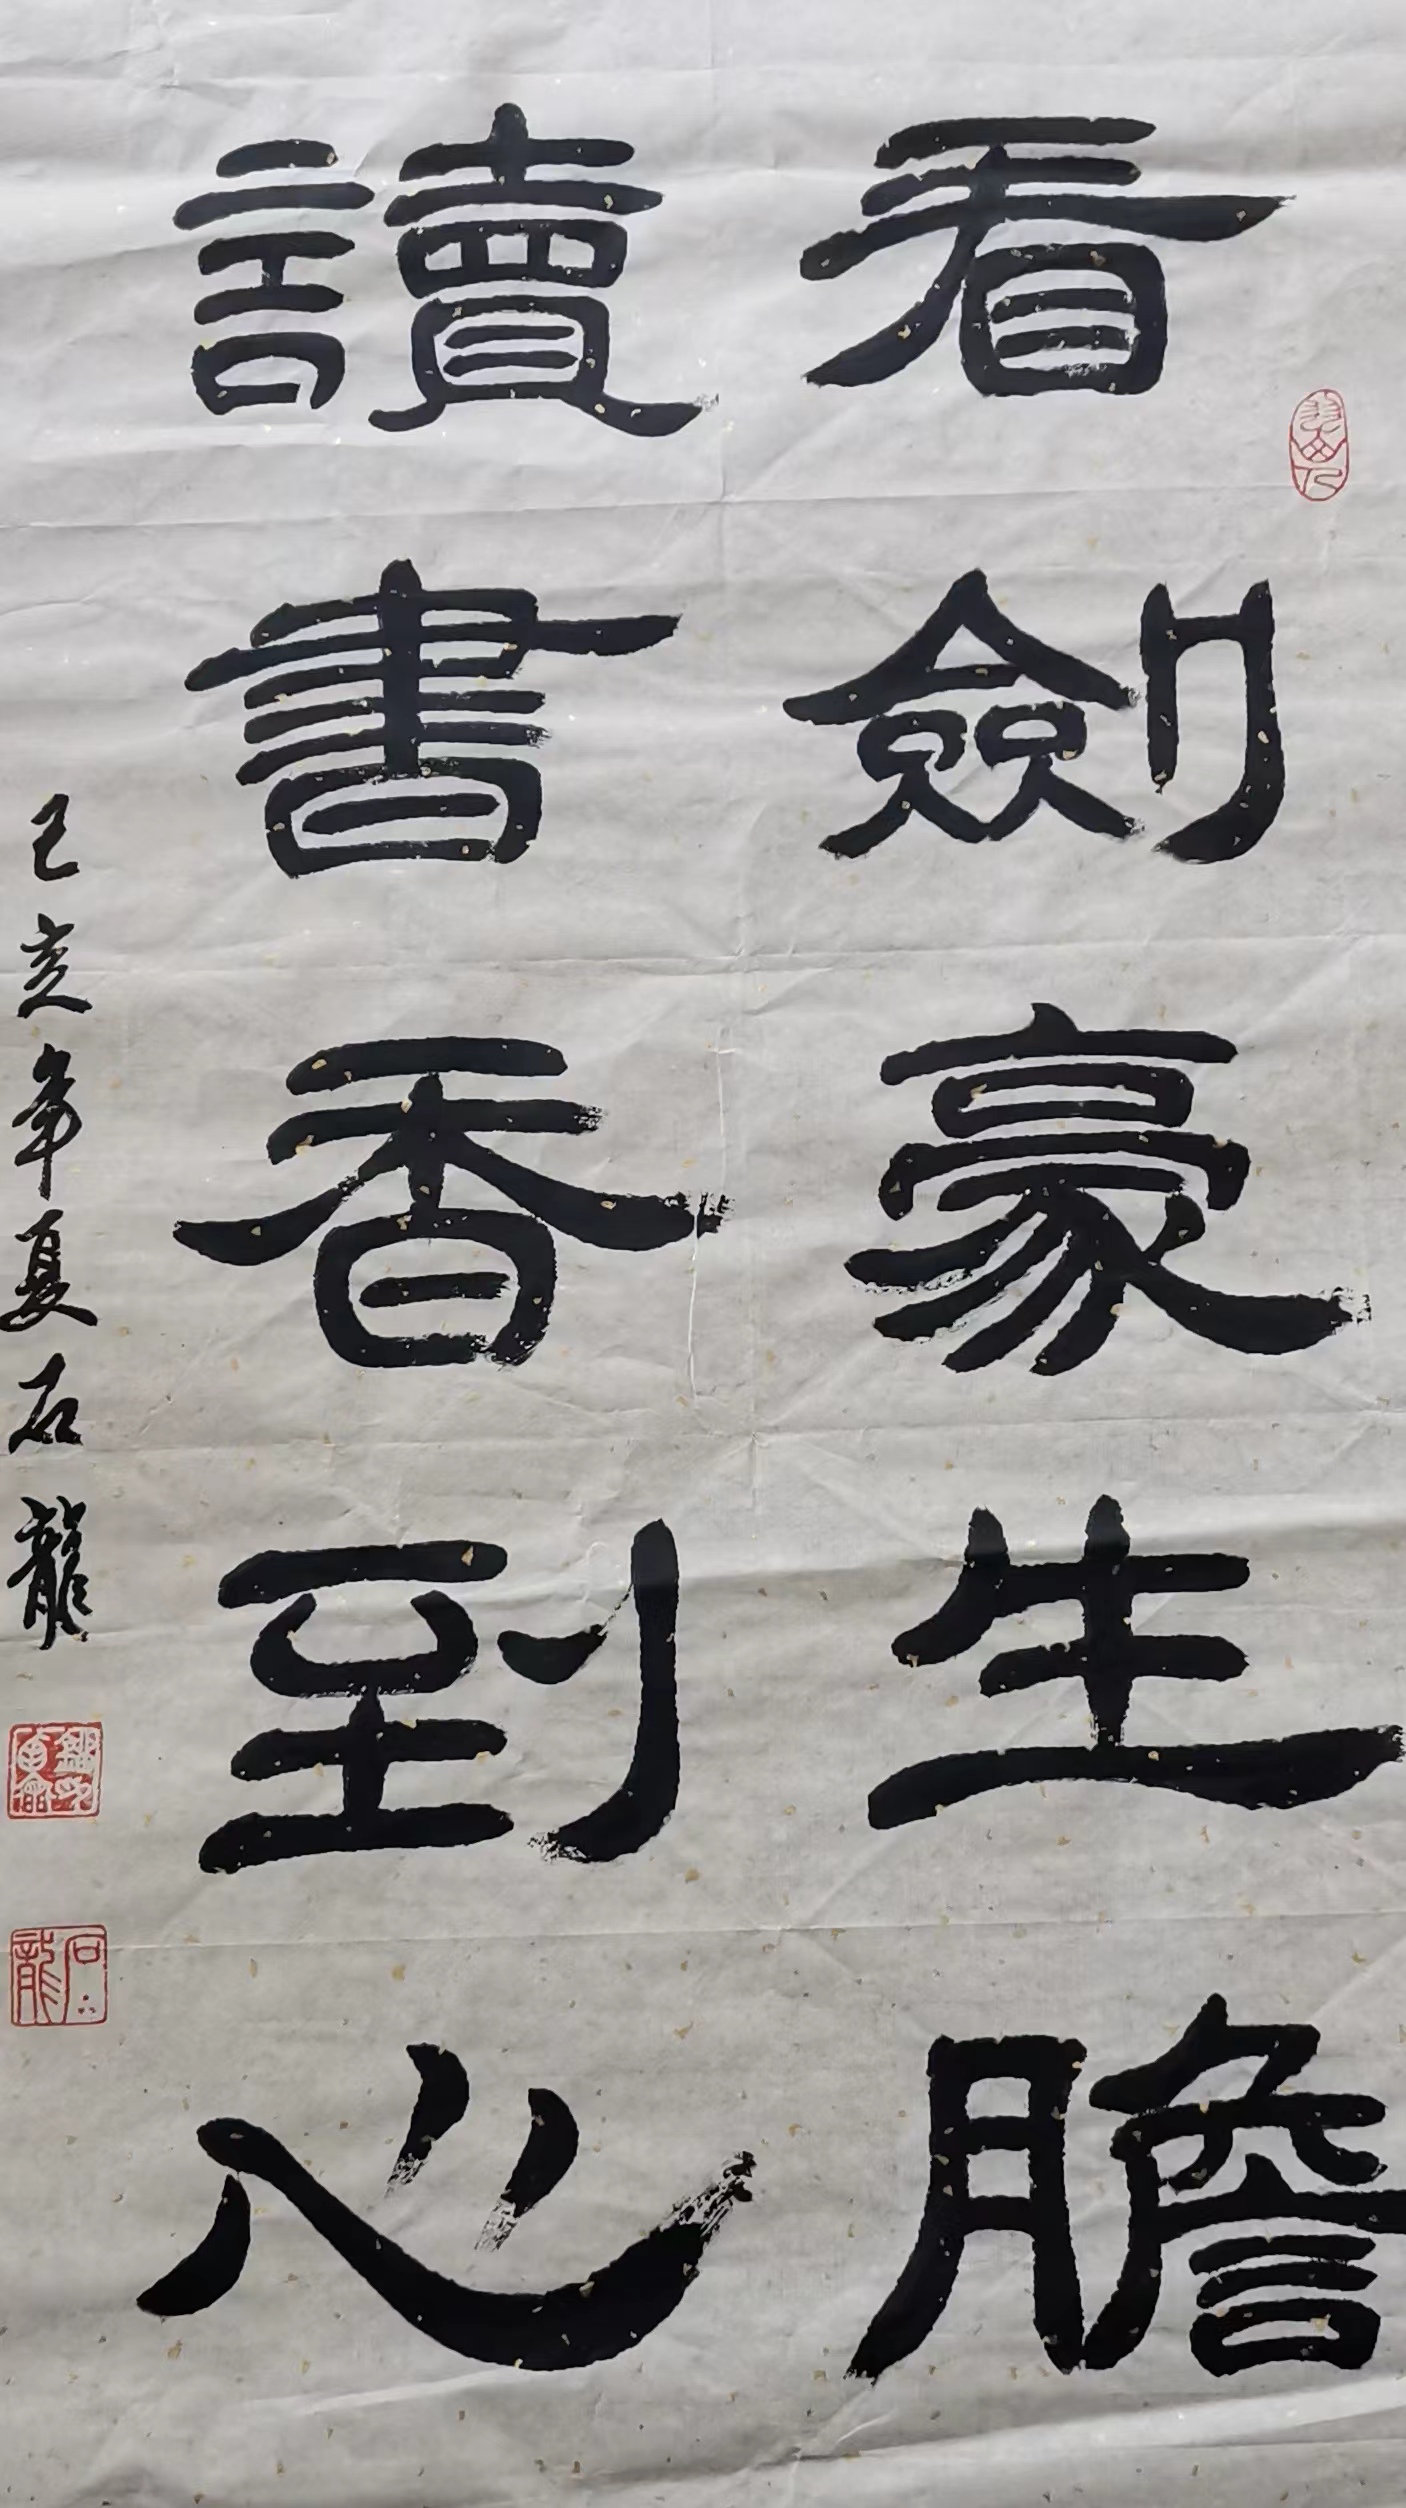 看劍豪生膽
讀書香到心
己亥年夏石龍
石龍